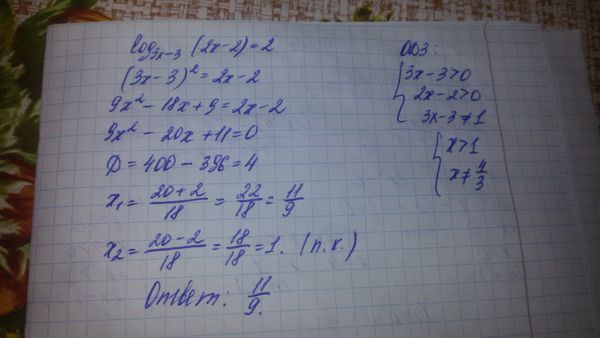 log₃ₓ₋₃ (2x-2)=2
(3x-3)²=2x-2
9x²-18x+9=2x-2
9x²-20x+11=0
D=400-396=4
x₁= 20+2/18 = 22/18 = 11/9
x₂= 20-2/18 = 18/18 =1. (п.к.)
Ответ: 11/9.
ОДЗ:
{3x-3>0
2x-2>0
3x-3≠1
{x>1
x≠4/3